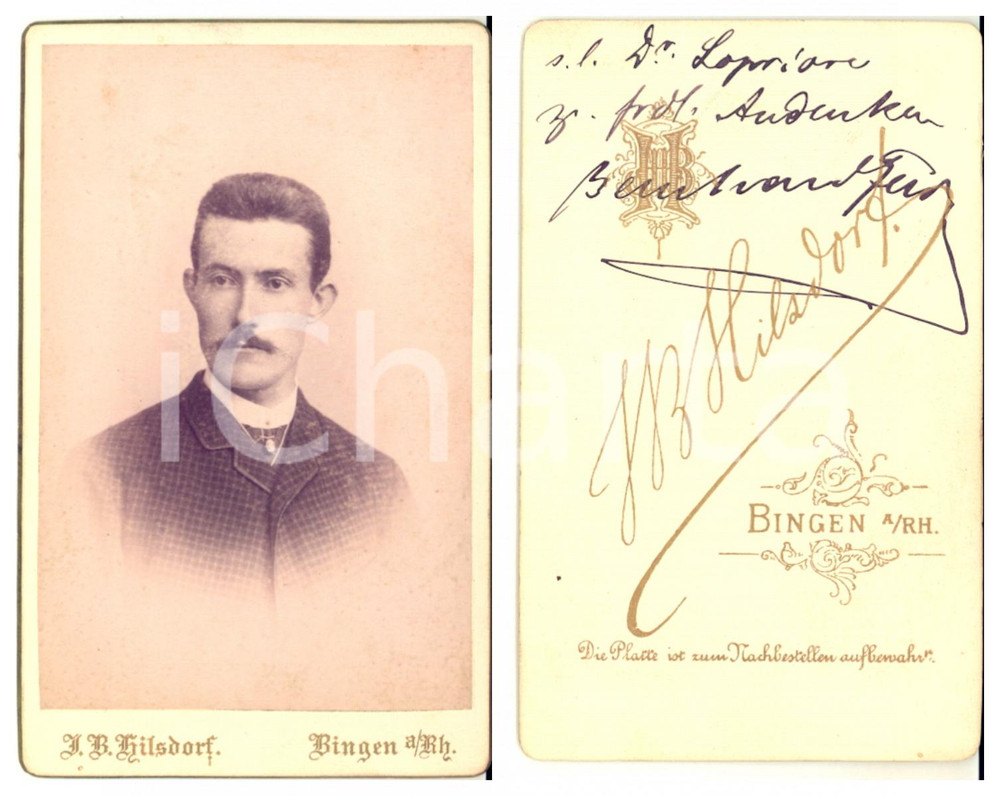 J. B. Hilsdorf.
Bingen a/Rh.
s.l. Dr. Lopriore
z. frdl. Andenken
Bernhard
HB
JB Hilsdorf.
BINGEN A/RH.
Die Platte ist zum Nachbestellen aufbewahrt.
iCharta